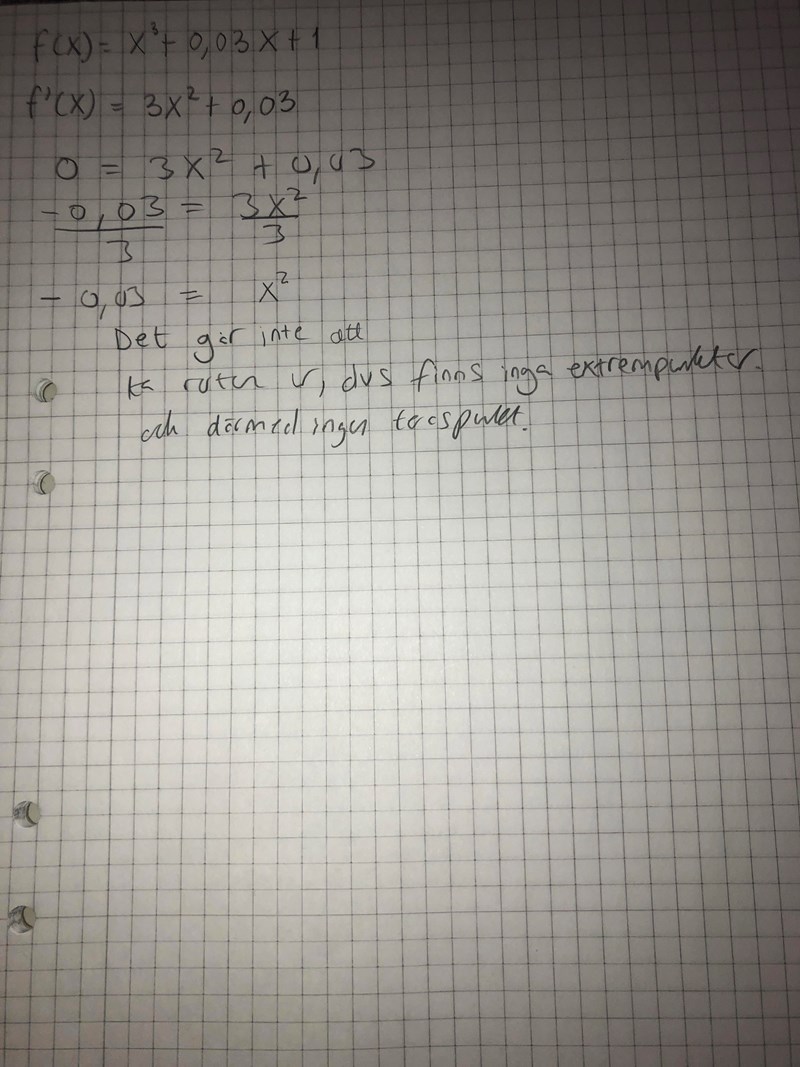 f(x) = x³ + 0,03x + 1
f'(x) = 3x² + 0,03
0 = 3x² + 0,03
-0,03 = 3x²
3 3
- 0,03 = x²
Det går inte att
ta roten ur, dvs finns inga extrempunkter.
och därmed ingen terasspunkt.